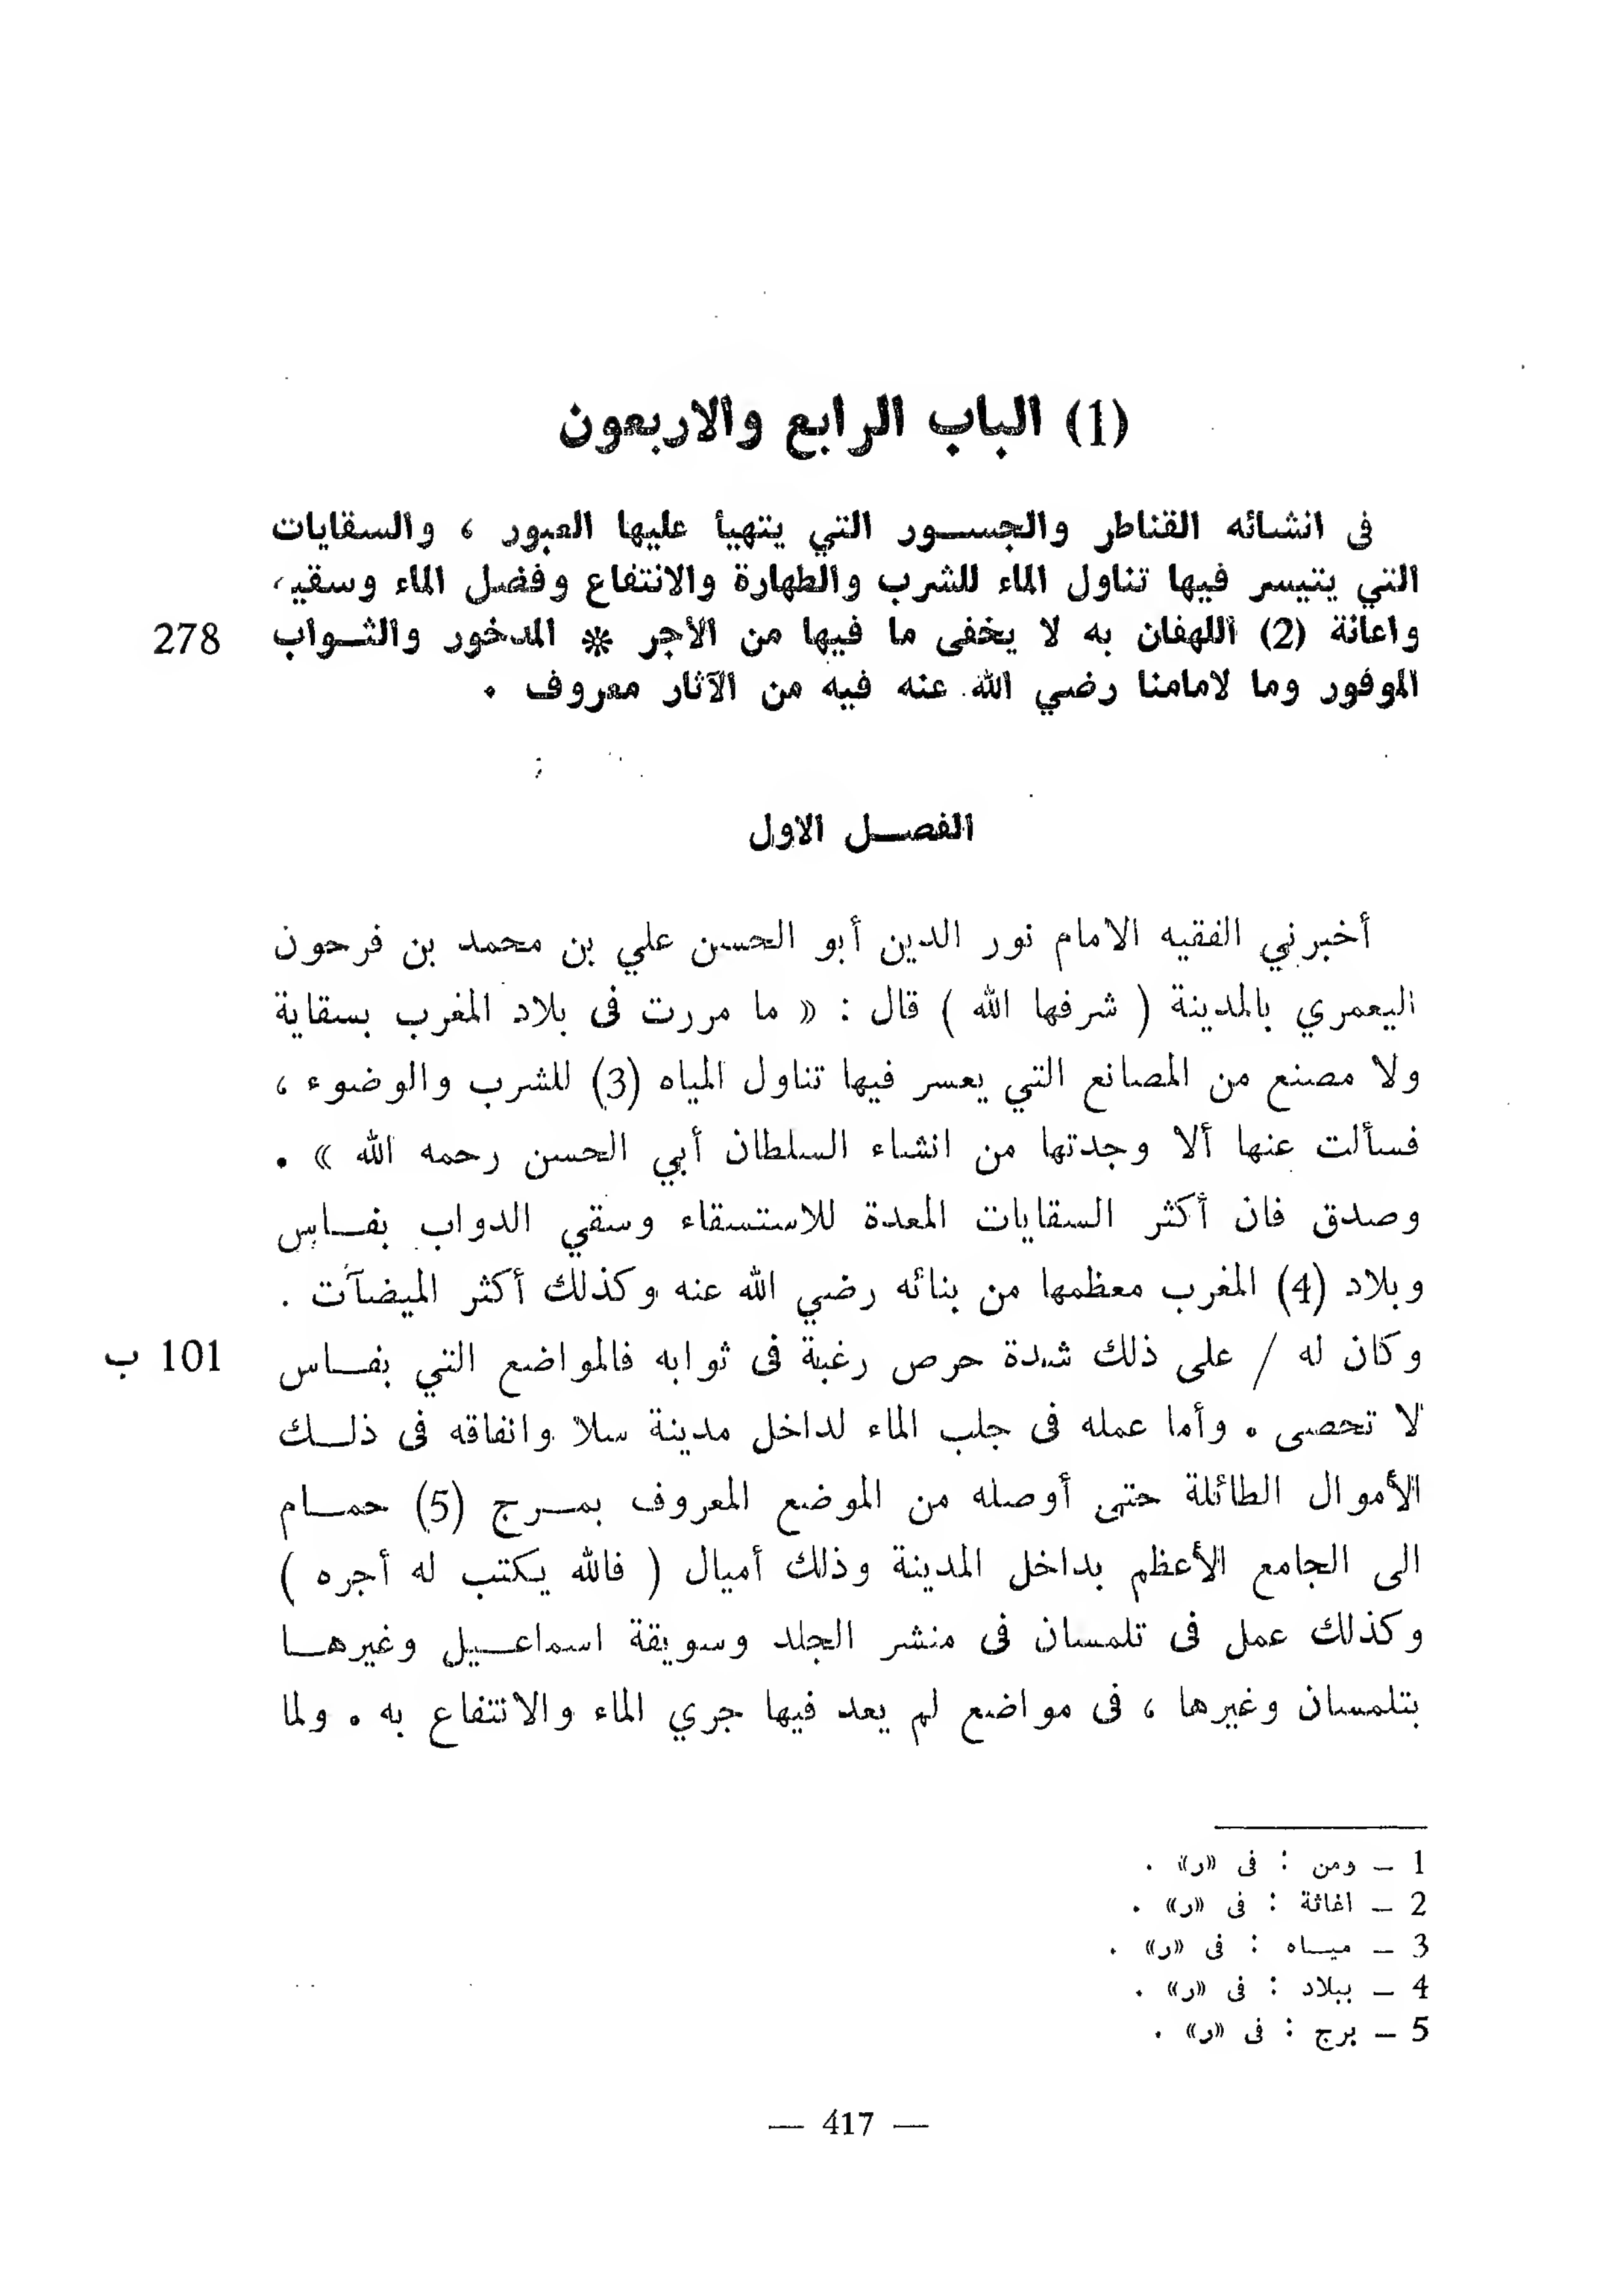 (1) الباب الرابع والاربعون
فى انشائه القناطر والجســور التي يتهيأ عليها العبور ، والسقايات
التي يتيسر فيها تناول الماء للشرب والطهارة والانتفاع وفضل الماء وسقيه،
واعانة (2) اللهفان به لا يخفى ما فيها من الأجر * المدخور والثــواب 278
الموفور وما لامامنا رضي الله عنه فيه من الآثار معروف .
الفصــل الاول
أخبرني الفقيه الامام نور الدين أبو الحسن علي بن محمد بن فرحون
اليعمري بالمدينة ( شرفها الله ) قال : « ما مررت فى بلاد المغرب بسقاية
ولا مصنع من المصانع التي يعسر فيها تناول المياه (3) للشرب والوضوء ،
فسألت عنها ألا وجدتها من انشاء السلطان أبي الحسن رحمه الله » .
وصدق فان أكثر السقايات المعدة للاستسقاء وسقي الدواب بفــاس
وبلاد (4) المغرب معظمها من بنائه رضي الله عنه وكذلك أكثر الميضآت .
وكان له / على ذلك شدة حرص رغبة فى ثوابه فالمواضع التي بفــاس 101 ب
لا تحصى . وأما عمله فى جلب الماء لداخل مدينة سلا وانفاقه فى ذلــك
الأموال الطائلة حتى أوصله من الموضع المعروف بمــرج (5) حمــام
الى الجامع الأعظم بداخل المدينة وذلك أميال ( فالله يكتب له أجره )
وكذلك عمل فى تلمسان فى منشر الجلد وسويقة اسماعــيل وغيرهــا
بتلمسان وغيرها ، فى مواضع لم يعد فيها جري الماء والانتفاع به . ولما
1 – ومن : فى «ر» .
2 – اغاثة : فى «ر» .
3 – ميــاه : فى «ر» .
4 – ببلاد : فى «ر» .
5 – برج : فى «ر» .
— 417 —